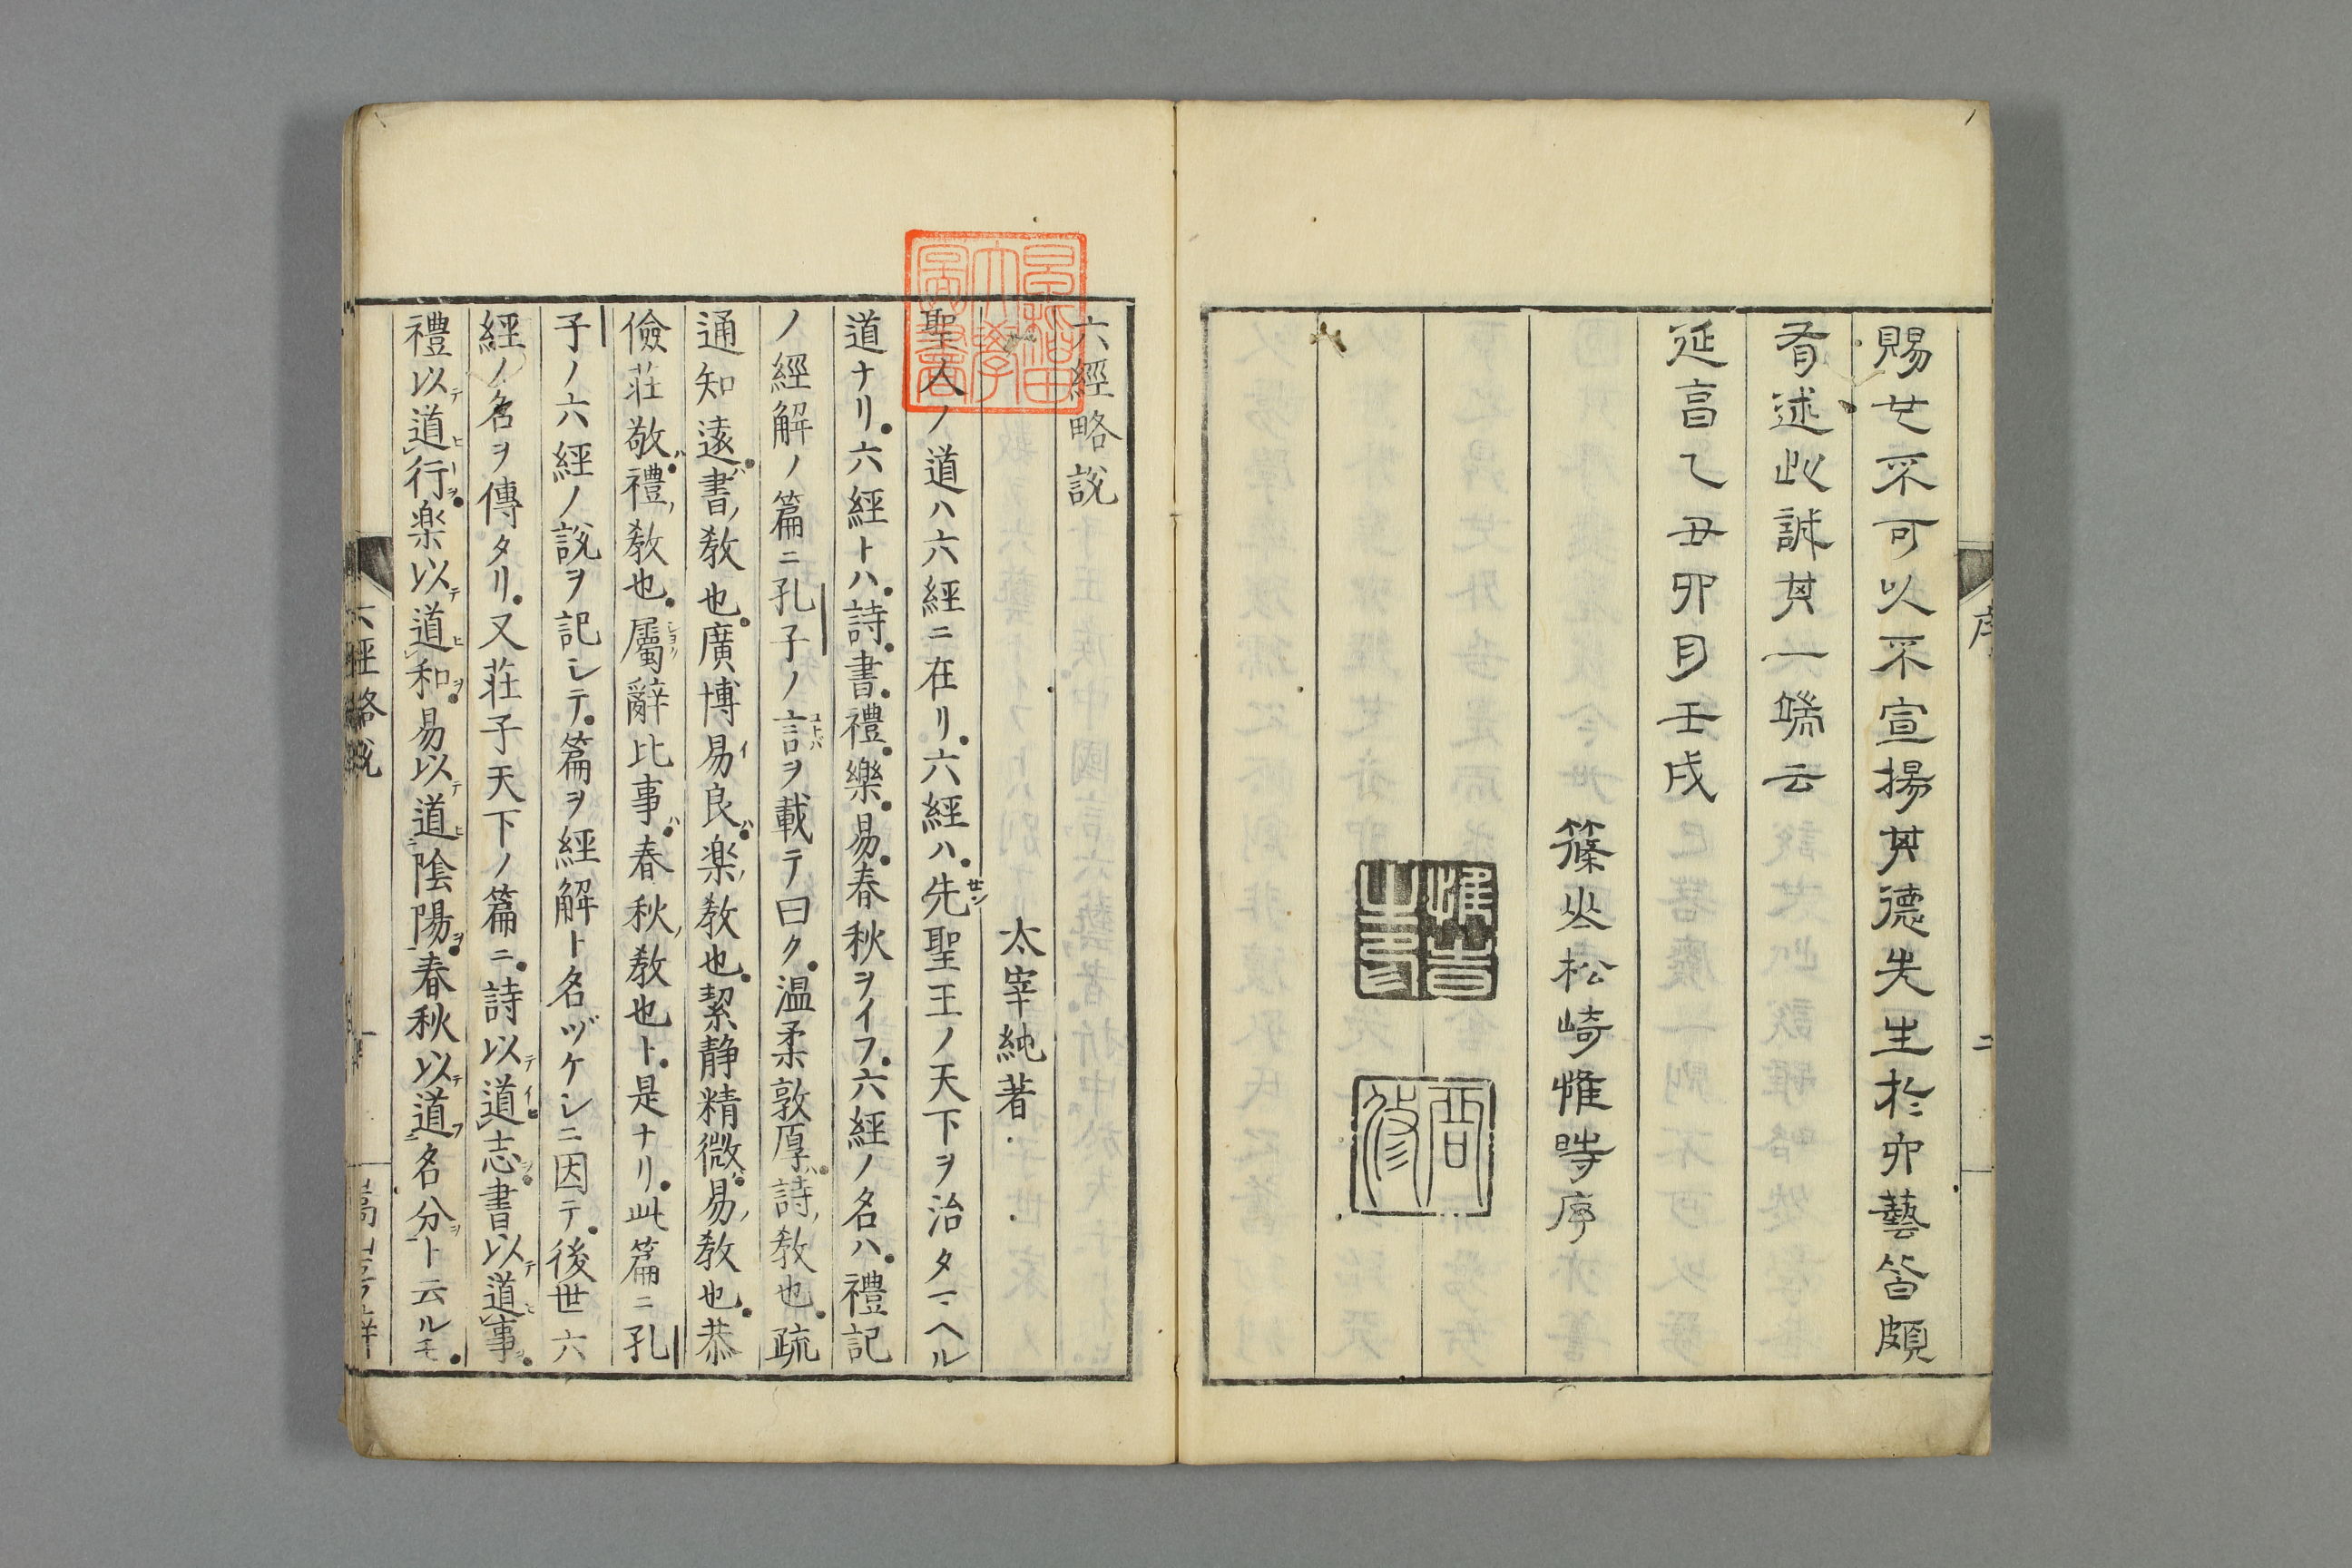 賜世不可以不宣揚其德先生於卯藝皆頗
有述此誠其一端云
延享乙丑卯月壬戌
篠山松崎惟時序
序
二
六經略說
太宰純著
聖人ノ道ハ六經ニ在リ六經ハ先聖王ノ天下ヲ治タマヘル
道ナリ六經トハ詩書禮樂易春秋ヲイフ六經ノ名ハ禮記
ノ經解ノ篇ニ孔子ノ言ヲ載テ曰ク温柔敦厚詩教也疏
通知遠書教也廣博易良楽教也絜静精微易教也恭
儉莊敬禮教也屬辭比事春秋教也ト是ナリ此篇ニ孔
子ノ六經ノ說ヲ記シテ篇ヲ經解ト名ヅケシニ因テ後世六
經ノ名ヲ傳タリ又莊子天下ノ篇ニ詩以道志書以道事
禮以道行楽以道和易以道陰陽春秋以道名分ト云ルモ
六經略說
一